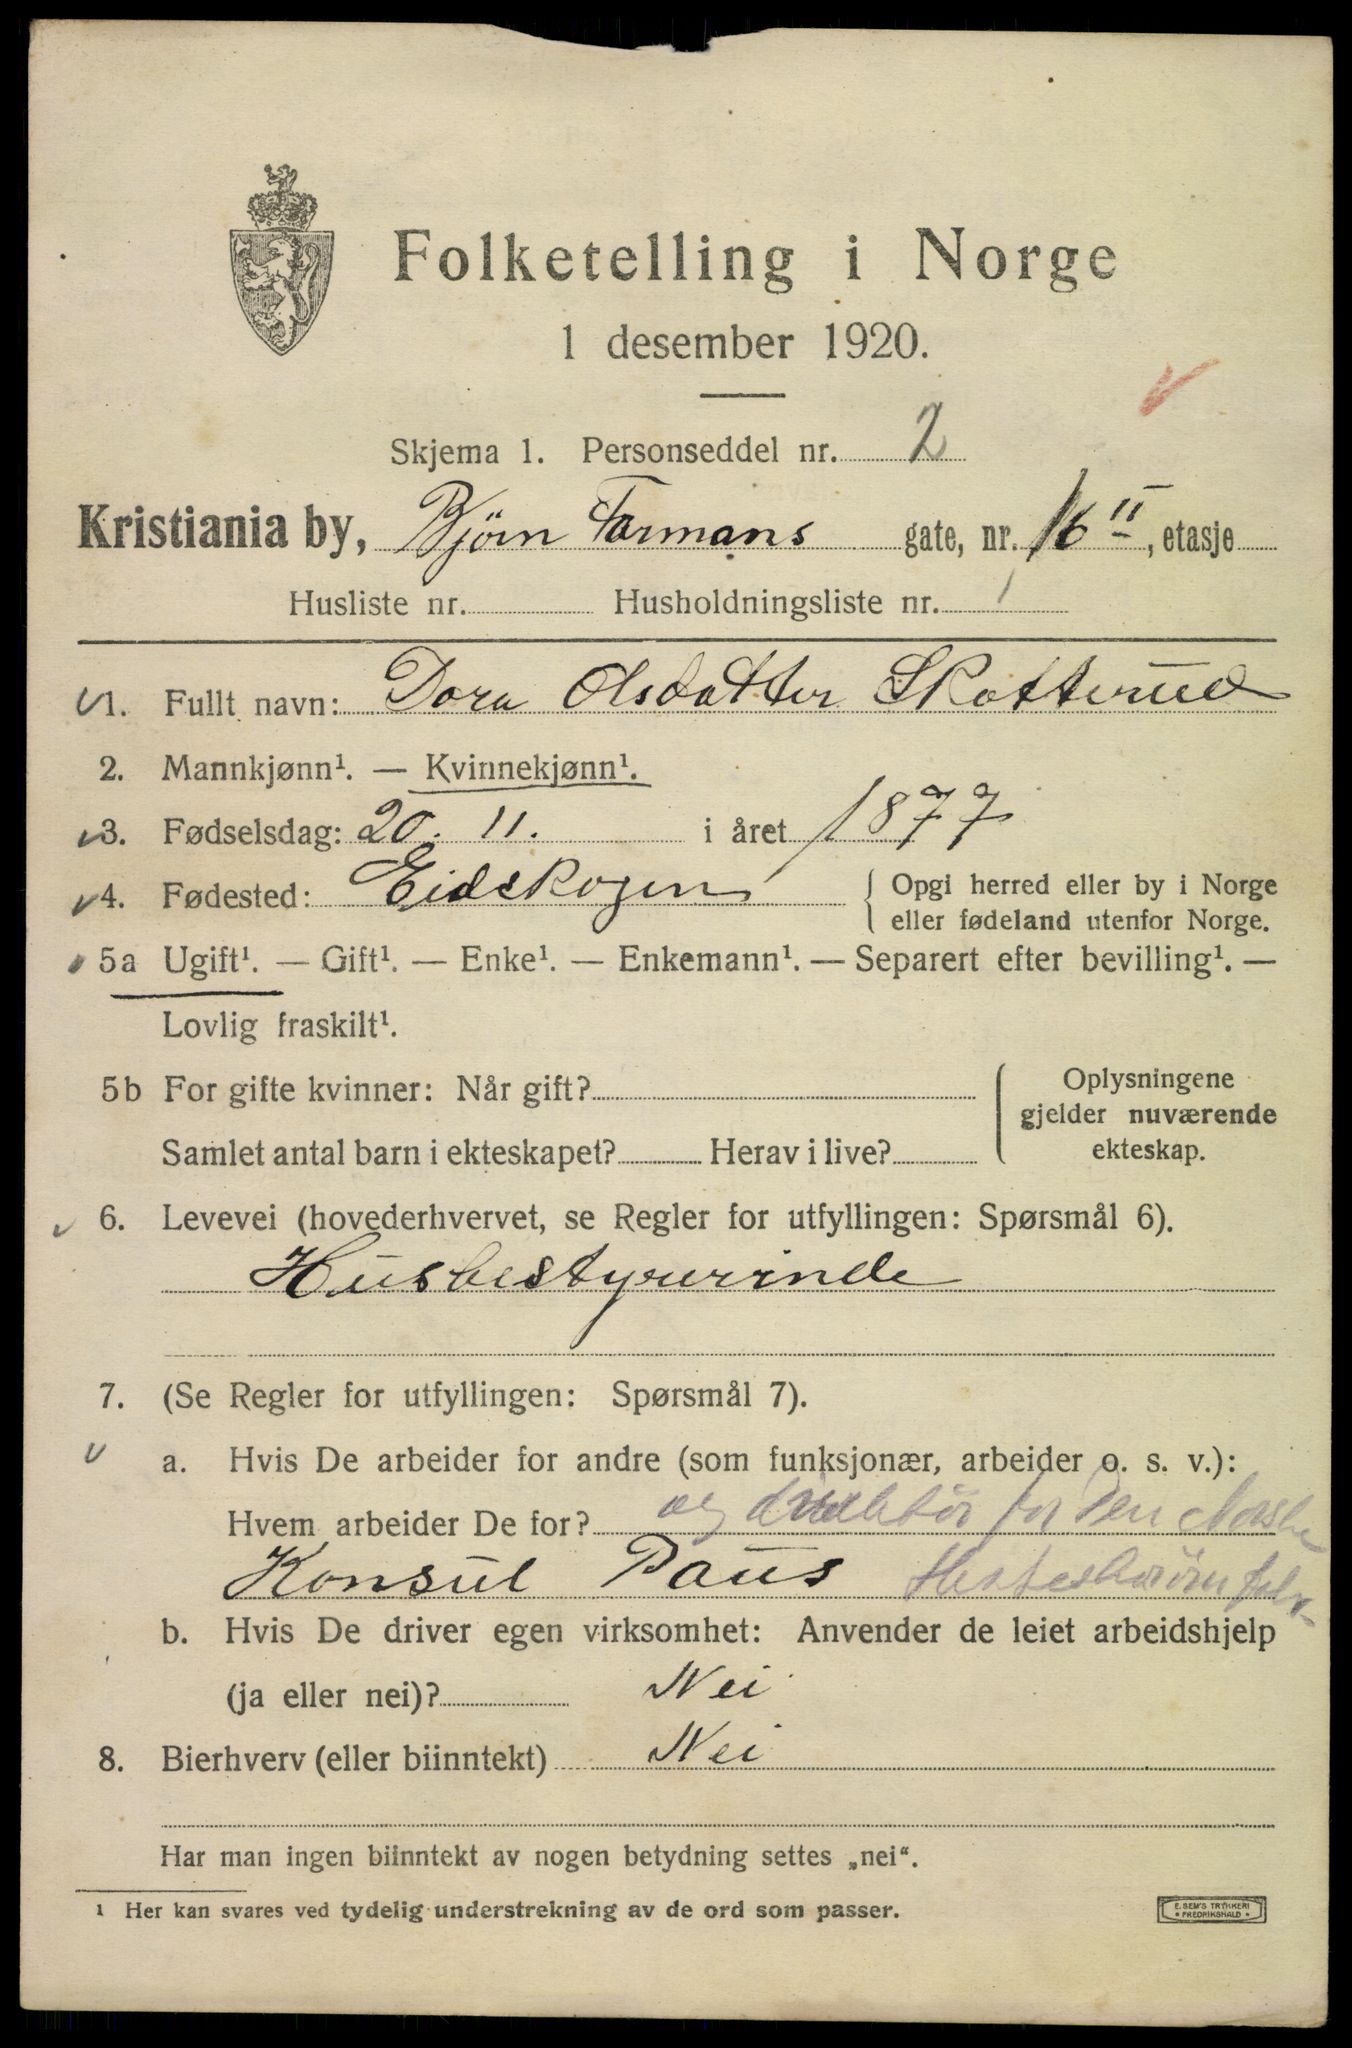 Folketelling i Norge
1 desember 1920.
Skjema 1. Personseddel nr. 2
Kristiania by, Bjørn Farmans gate, nr. 16 II, etasje
Husliste nr. Husholdningsliste nr. 1
1. Fullt navn: Dora Olsdatter Skotterud
2. Mannkjønn¹. — Kvinnekjønn¹.
3. Fødselsdag: 20. 11. i året 1877
4. Fødested: Eidskogen { Opgi herred eller by i Norge
eller fødeland utenfor Norge.
5a Ugift¹. — Gift¹. — Enke¹. — Enkemann¹. — Separert efter bevilling¹. —
Lovlig fraskilt¹.
5b For gifte kvinner: Når gift? Oplysningene
gjelder nuværende
Samlet antal barn i ekteskapet? Herav i live? ekteskap.
6. Levevei (hovederhvervet, se Regler for utfyllingen: Spørsmål 6).
Husbestyrerinde
7. (Se Regler for utfyllingen: Spørsmål 7).
a. Hvis De arbeider for andre (som funksjonær, arbeider o. s. v.):
Hvem arbeider De for? og direktør for Den Norske
Konsul Paus
b. Hvis De driver egen virksomhet: Anvender de leiet arbeidshjelp
(ja eller nei)? Nei
8. Bierhverv (eller biinntekt) Nei
Har man ingen biinntekt av nogen betydning settes „nei“.
¹ Her kan svares ved tydelig understrekning av de ord som passer.
E. SEM'S TRYKKERI
FREDRIKSHALD